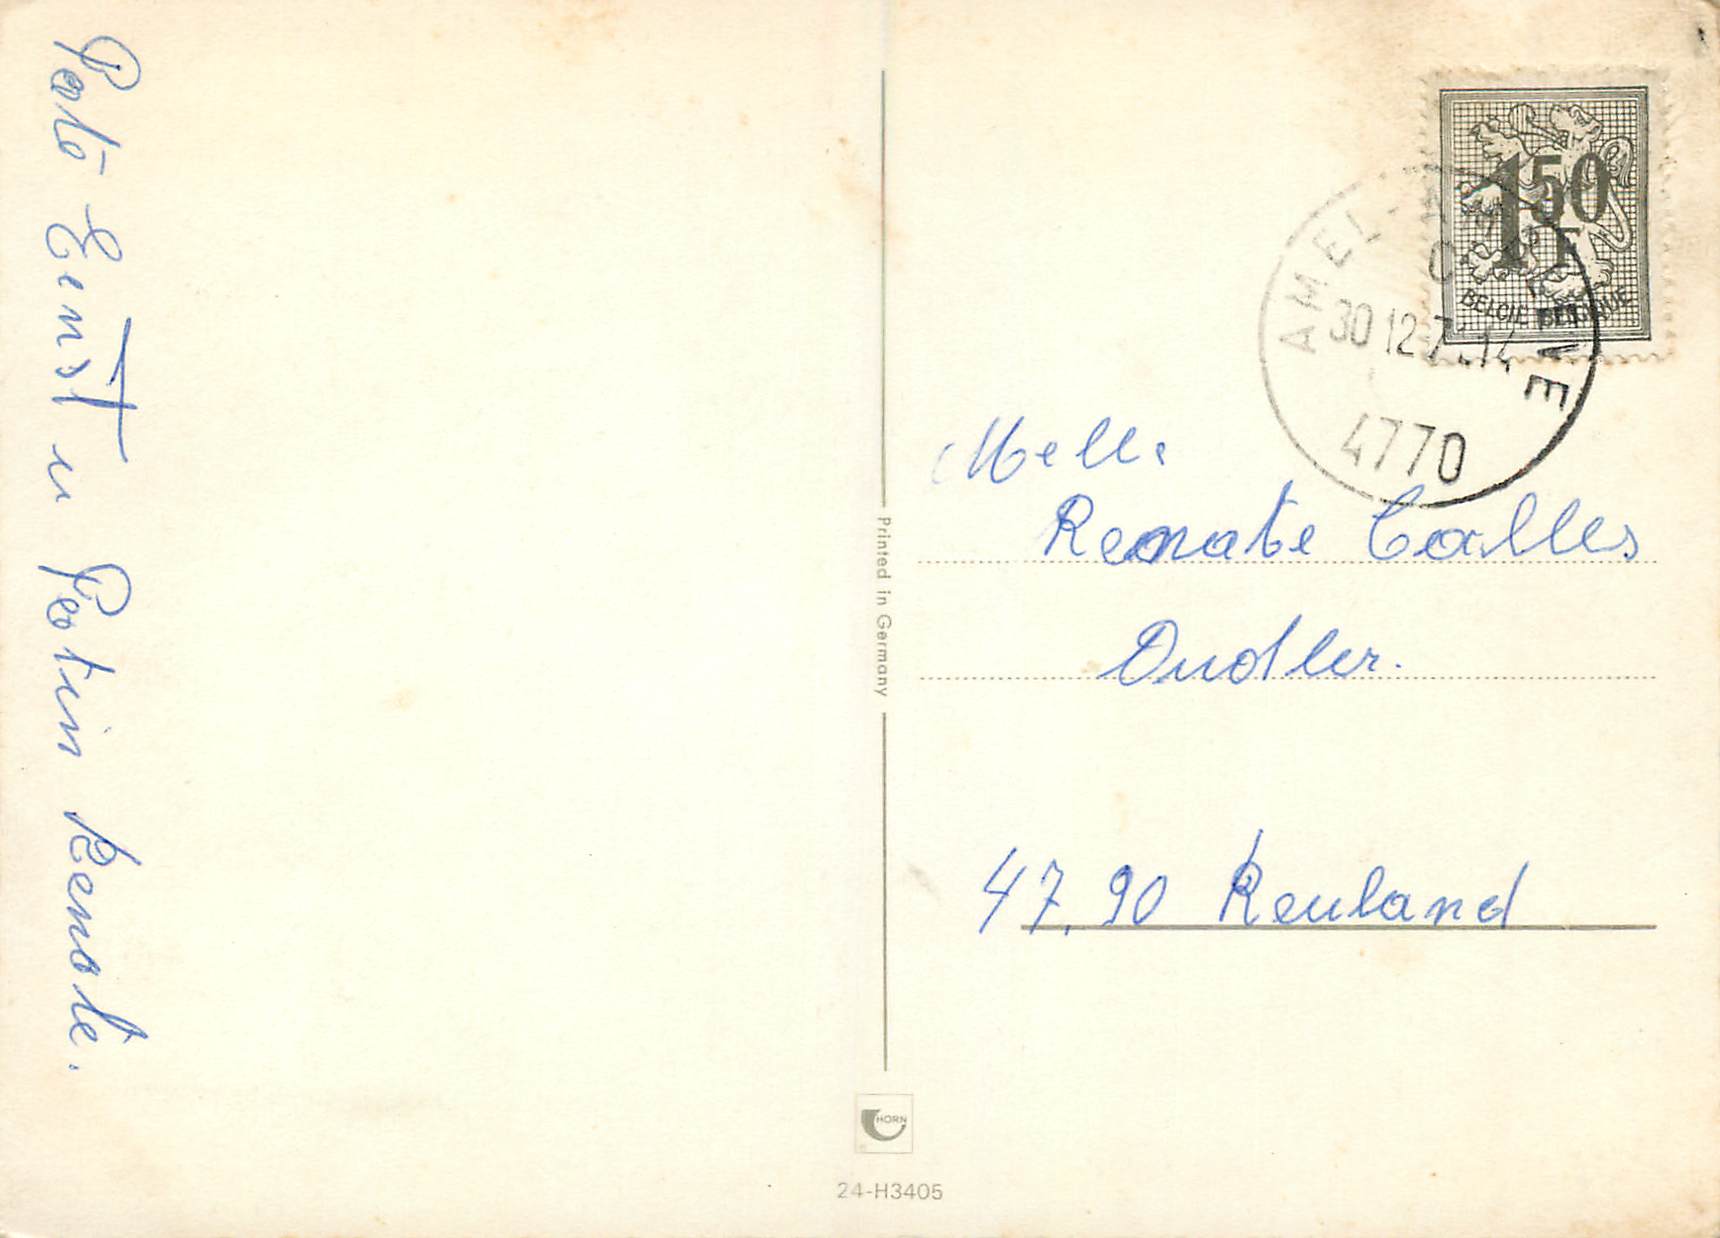 Pate Ernst u Patin Renate.
Melle
Renate Calles
Oudler.
47,90 Reuland
1 50
1F
BELGIE BELGIQUE
AMEL-
VE
30 12 7 -14
4770
Printed in Germany
HORN
24-H3405